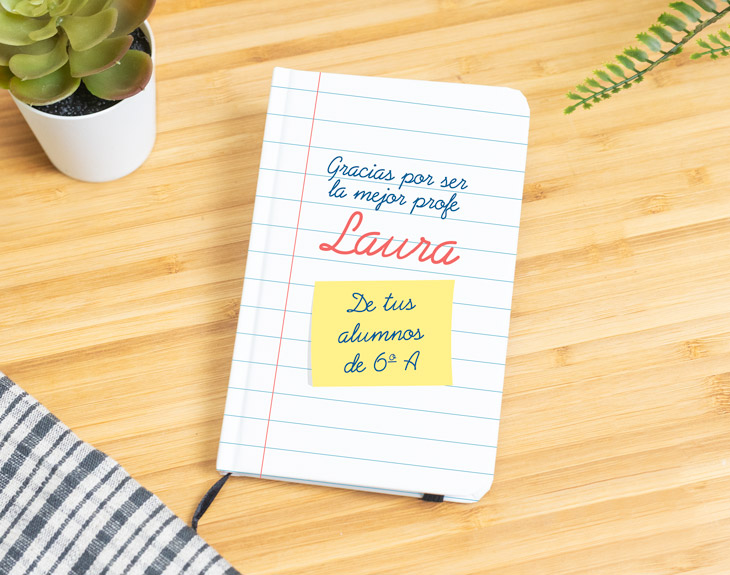 Gracias por ser
la mejor profe
Laura
De tus
alumnos
de 6º A